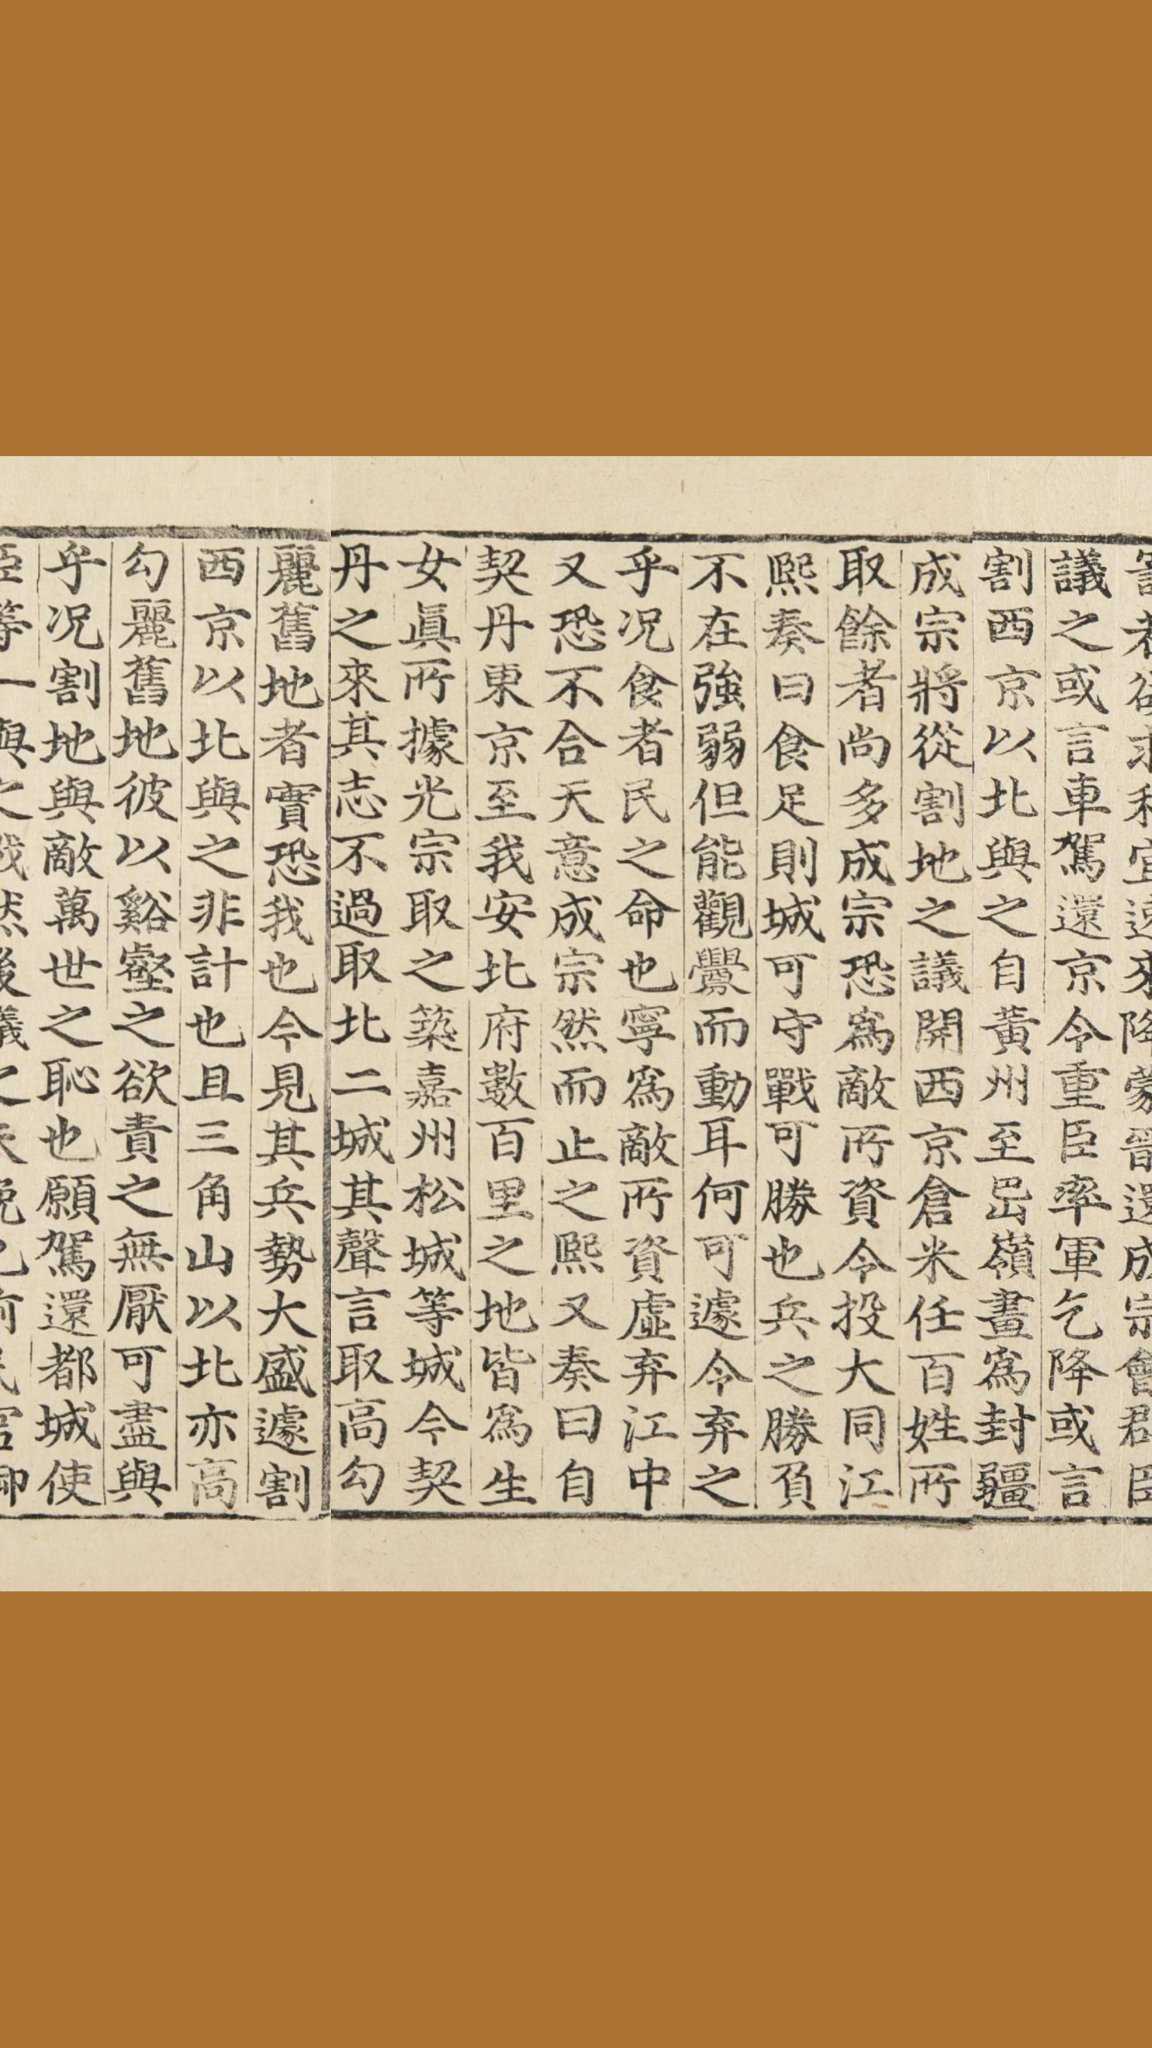 者欲求和宜速來降蒙還成宗會群臣
議之或言車駕還京令重臣率軍乞降或言
割西京以北與之自黃州至岊嶺畫爲封疆
成宗將從割地之議開西京倉米任百姓所
取餘者尚多成宗恐爲敵所資令投大同江
熙奏曰食足則城可守戰可勝也兵之勝負
不在強弱但能觀釁而動耳何可遽令弃之
乎况食者民之命也寧爲敵所資虛弃江中
又恐不合天意成宗然而止之熙又奏曰自
契丹東京至我安北府數百里之地皆爲生
女眞所據光宗取之築嘉州松城等城今契
丹之來其志不過取北二城其聲言取高勾
麗舊地者實恐我也今見其兵勢大盛遽割
西京以北與之非計也且三角山以北亦高
勾麗舊地彼以谿壑之欲責之無厭可盡與
乎况割地與敵萬世之恥也願駕還都城使
臣等一與之戰然後議之未晩也前民官御